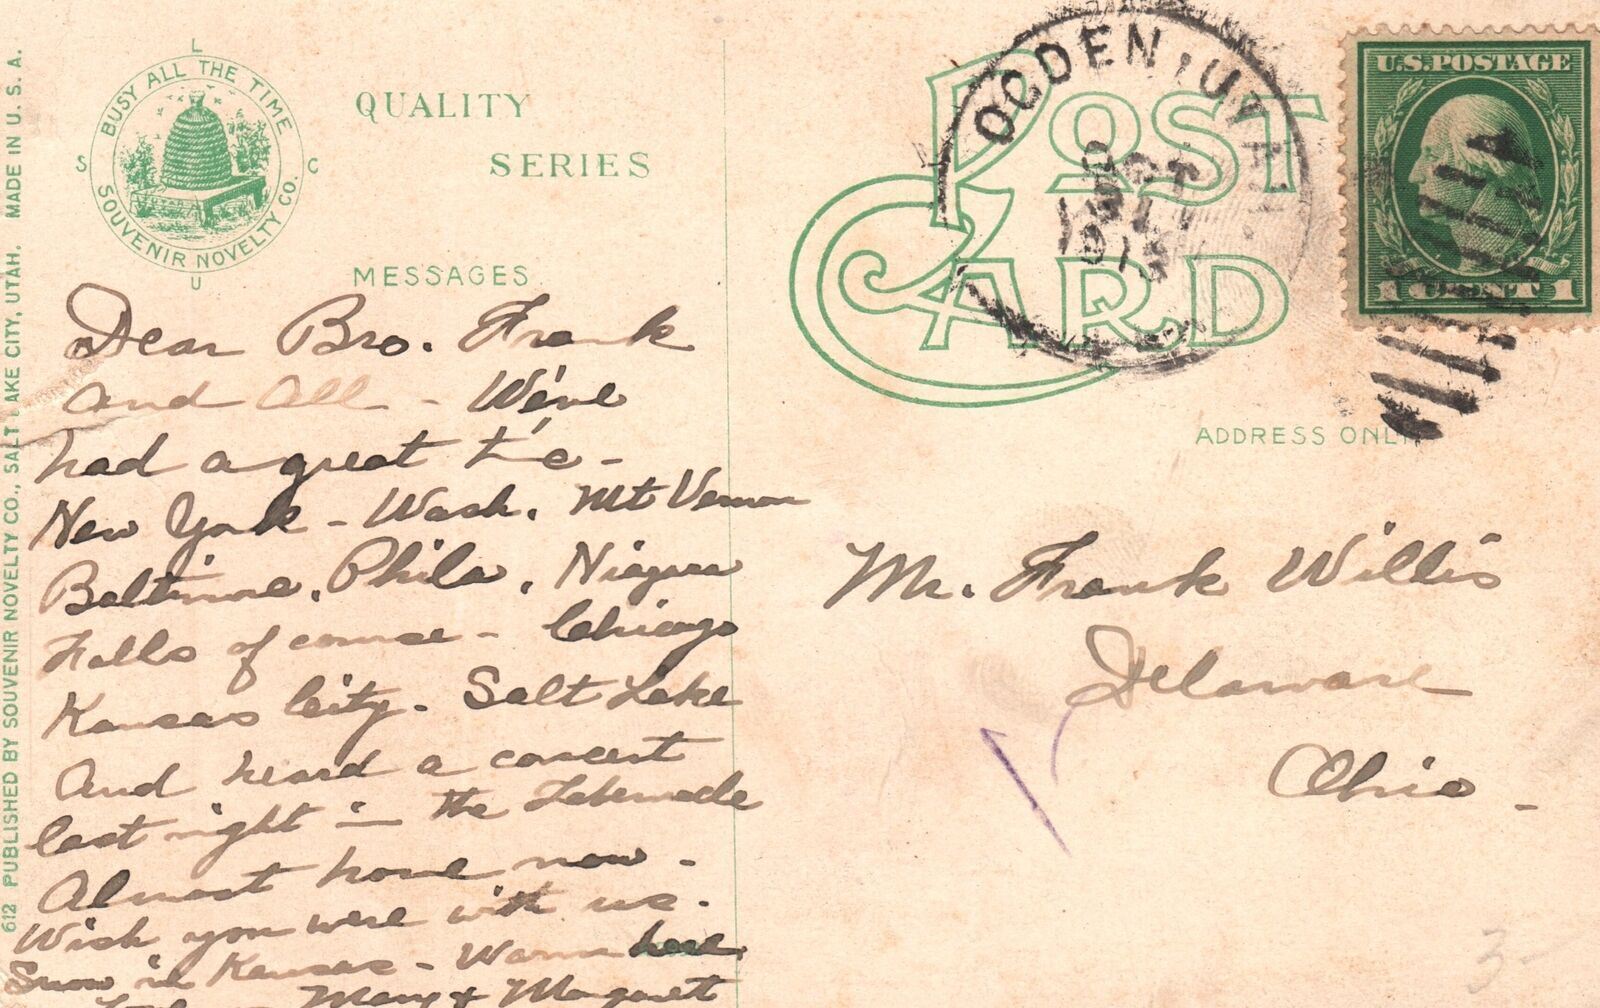 L
BUSY ALL THE TIME
S C
SOUVENIR NOVELTY CO.
U
QUALITY
SERIES
POST
CARD
OGDEN, UTAH.
OCT
U.S. POSTAGE
1 CENT 1
MESSAGES
ADDRESS ONLY
612 PUBLISHED BY SOUVENIR NOVELTY CO., SALT LAKE CITY, UTAH. MADE IN U. S. A.
Dear Bro. Frank
and all - We've
had a great
New York - Wash. Mt Vernon
Baltimore, Phila, Niagara
Falls of course - Chicago
Kansas City. Salt Lake
And heard a concert
last night in the Tabernacle
Almost home now -
Wish you were with us.
Snow in Kansas - Warm here
Mary & Margarett
Mr. Frank Willis
Delaware
Ohio -
3-